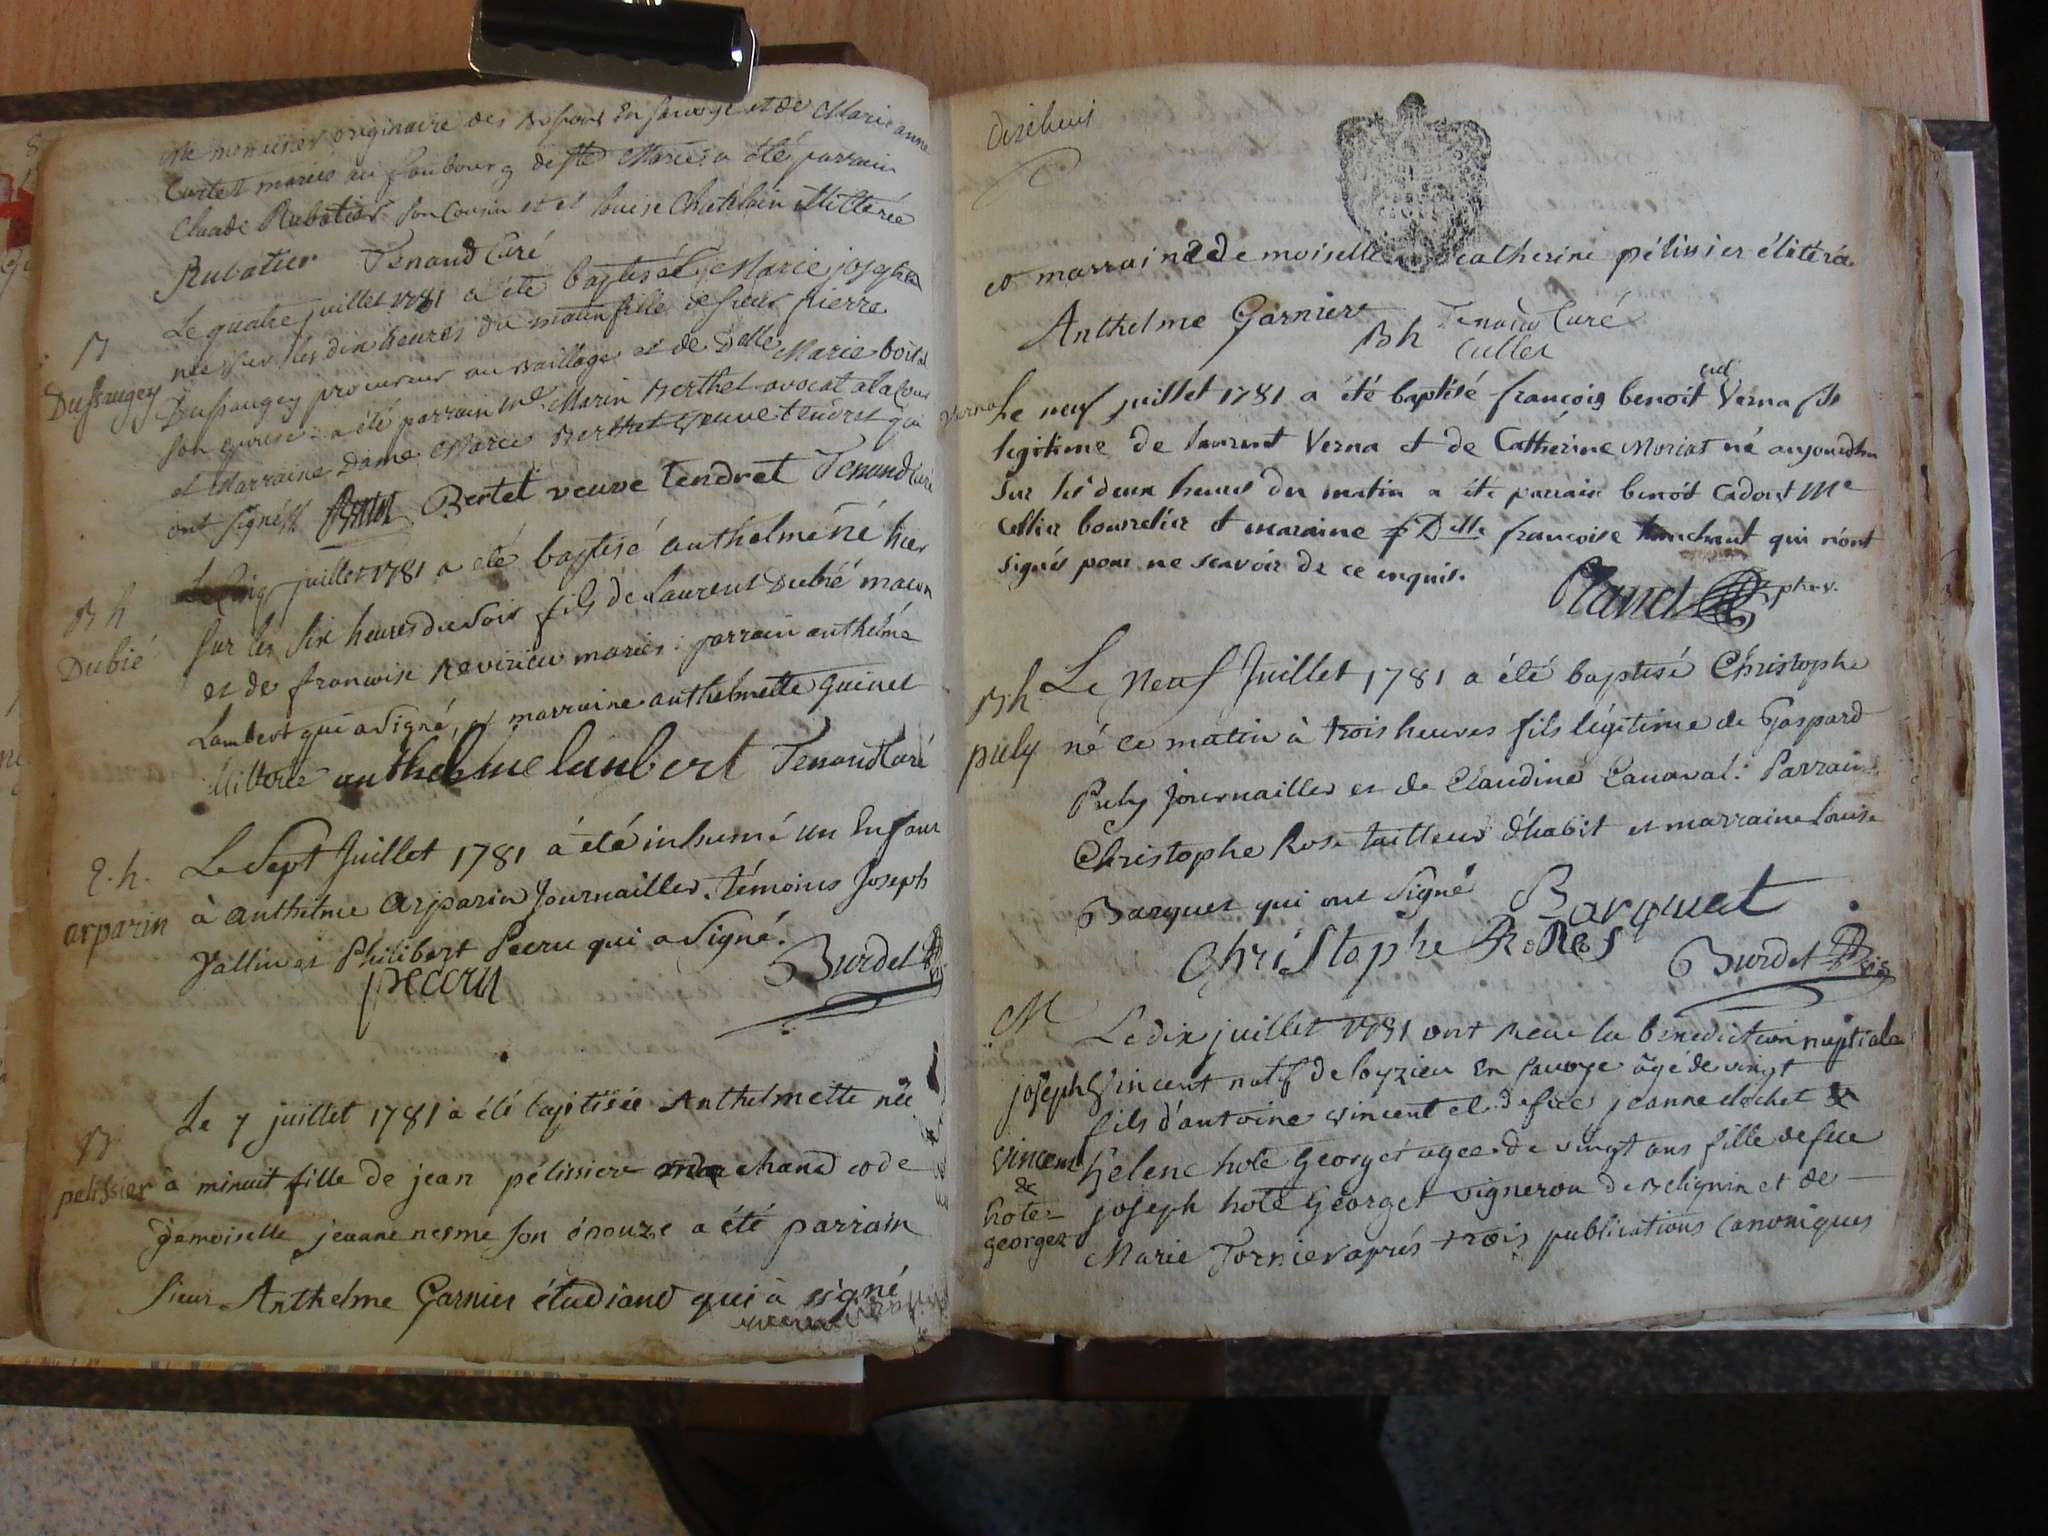 originaire des en savoye et de Marie anne
mariés au faubourg de ste Marie, a été parrain
Claude Rubatier son Cousin et et louise Chatelain illitérée
Rubatier Tenand Curé
B
Dussaugey
Le quatre juillet 1781 a été baptisée Marie josephe
née sur les dix heures du matin fille de sieur pierre
Dussaugey procureur au Baillage et de Delle Marie
son epouse : a été parrain Me Marin Berthet avocat a la Cour
et Marraine Dame Marie Berthet veuve tendret qui
ont signés Bertet veuve tendret Tenand Curé
B h
Dubié
Le Cinq juillet 1781 a été baptisé anthelme né hier
sur les six heures du soir fils de Laurent Dubié macon
et de francoise Revirieu mariés : parrain anthelme
Lambert qui a signé, et marraine anthelmette Guinet
illitérée anthelme lambert Tenand Curé
E. h.
arparin
Le Sept Juillet 1781 à été inhumé un Enfant
à anthelme arparin Journaillier. témoins Joseph
Vallin et Philibert Pecru qui a Signé.
peccru Burdet
B
pelissier
Le 7 juillet 1781 à été baptisée Anthelmette née
à minuit fille de jean pélissier marchand et de
demoiselle jeanne nesme son épouze a été parrain
sieur Anthelme Garnier étudiant qui à signé
dixhuit
et marraine demoiselle catherine pélissier
Anthelme Garnier Tenand Curé
B h
Verna
Le neuf juillet 1781 a été baptisé françois benoit Verna fils
legitime de laurent Verna et de Cathérine Moriat né aujourdhui
sur les deux heures du matin a été parrain benoit Cadout Me
sellier bourelier et maraine Delle francoise qui n'ont
signés pour ne scavoir de ce enquis.
B h
puly
Le Neuf Juillet 1781 a été baptisé Christophe
né ce matin à trois heures fils légitime de Gaspard
Puly Journaillier et de Claudine Canaval : Parrain
Christophe Rose tailleur d'habit et marraine Louise
Barquet qui ont Signé Barquet
ChriStophe Roses Burdet
M
joseph
vincent
&
hote
georget
Le dix juillet 1781 ont Recue la bénédiction nuptiale
Vincent natif de loyzieu en savoye âgé de vingt
fils d'antoine vincent et de feue jeanne clochet &
helene hote Georget agee de vingt ans fille de feu
joseph hote Georget vigneron de Belignin et de
Marie Tornier aprés trois publications Canoniques